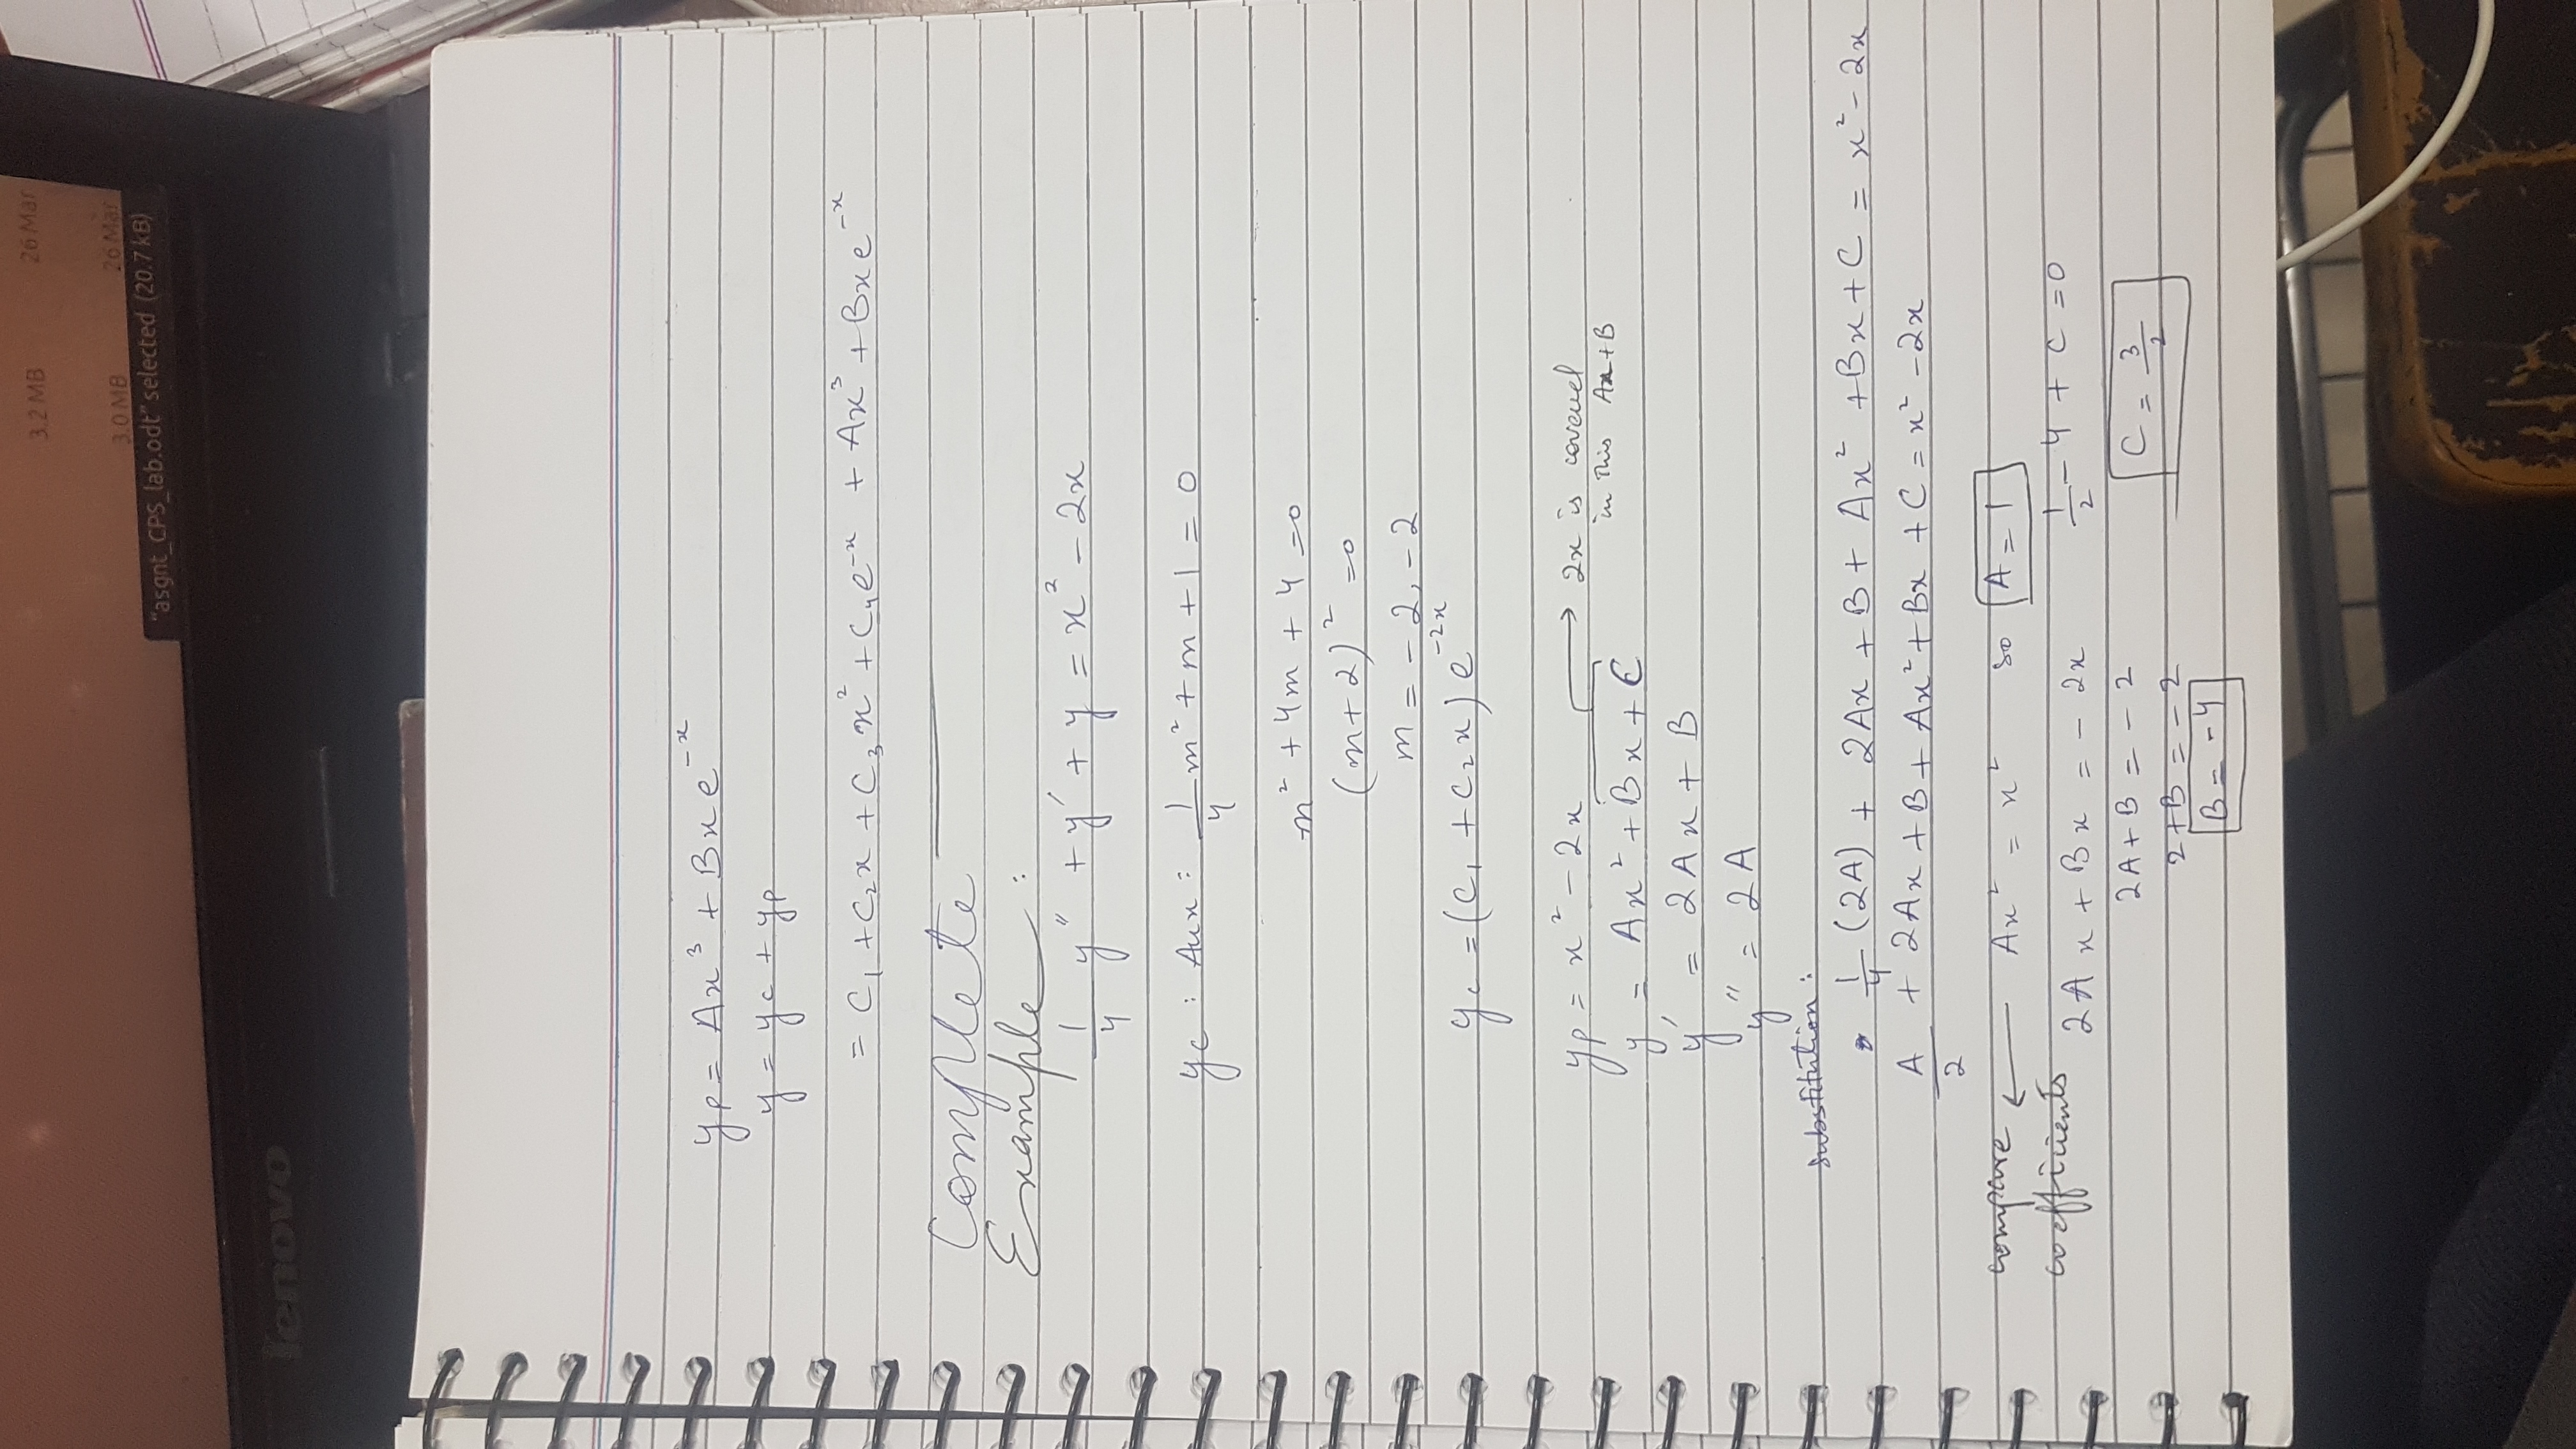 3.2 MB 26 Mar
3.0 MB 26 Mar
"asgnt_CPS_lab.odt" selected (20.7 kB)
lenovo
yp = Ax³ + Bxe⁻ˣ
y = yc + yp
= C₁ + C₂x + C₃x² + C₄e⁻ˣ + Ax³ + Bxe⁻ˣ
Complete
Example :
1/4 y'' + y' + y = x² - 2x
yc : Aux : 1/4 m² + m + 1 = 0
m² + 4m + 4 = 0
(m+2)² = 0
m = -2, -2
yc = (C₁ + C₂x) e⁻²ˣ
yp = x² - 2x → 2x is covered
in this Ax+B
y = Ax² + Bx + C
y' = 2Ax + B
y'' = 2A
substitution :
1/4 (2A) + 2Ax + B + Ax² + Bx + C = x² - 2x
A/2 + 2Ax + B + Ax² + Bx + C = x² - 2x
compare ← Ax² = x² so A = 1
coefficients 2Ax + Bx = -2x 1/2 - 4 + C = 0
2A + B = -2 C = 3/2
2 + B = -2
B = -4